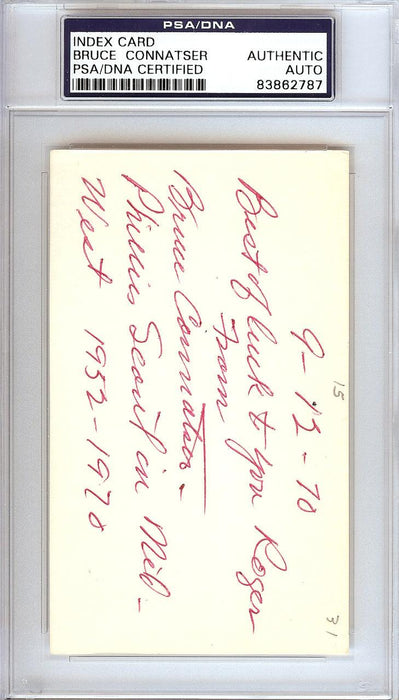 PSA/DNA
INDEX CARD
BRUCE CONNATSER
PSA/DNA CERTIFIED
AUTHENTIC
AUTO
83862787
9-12-70
Best of luck to you Roger
From
Bruce Connatser-
Phillies Scout in Mid-
West 1952-1970
15
31